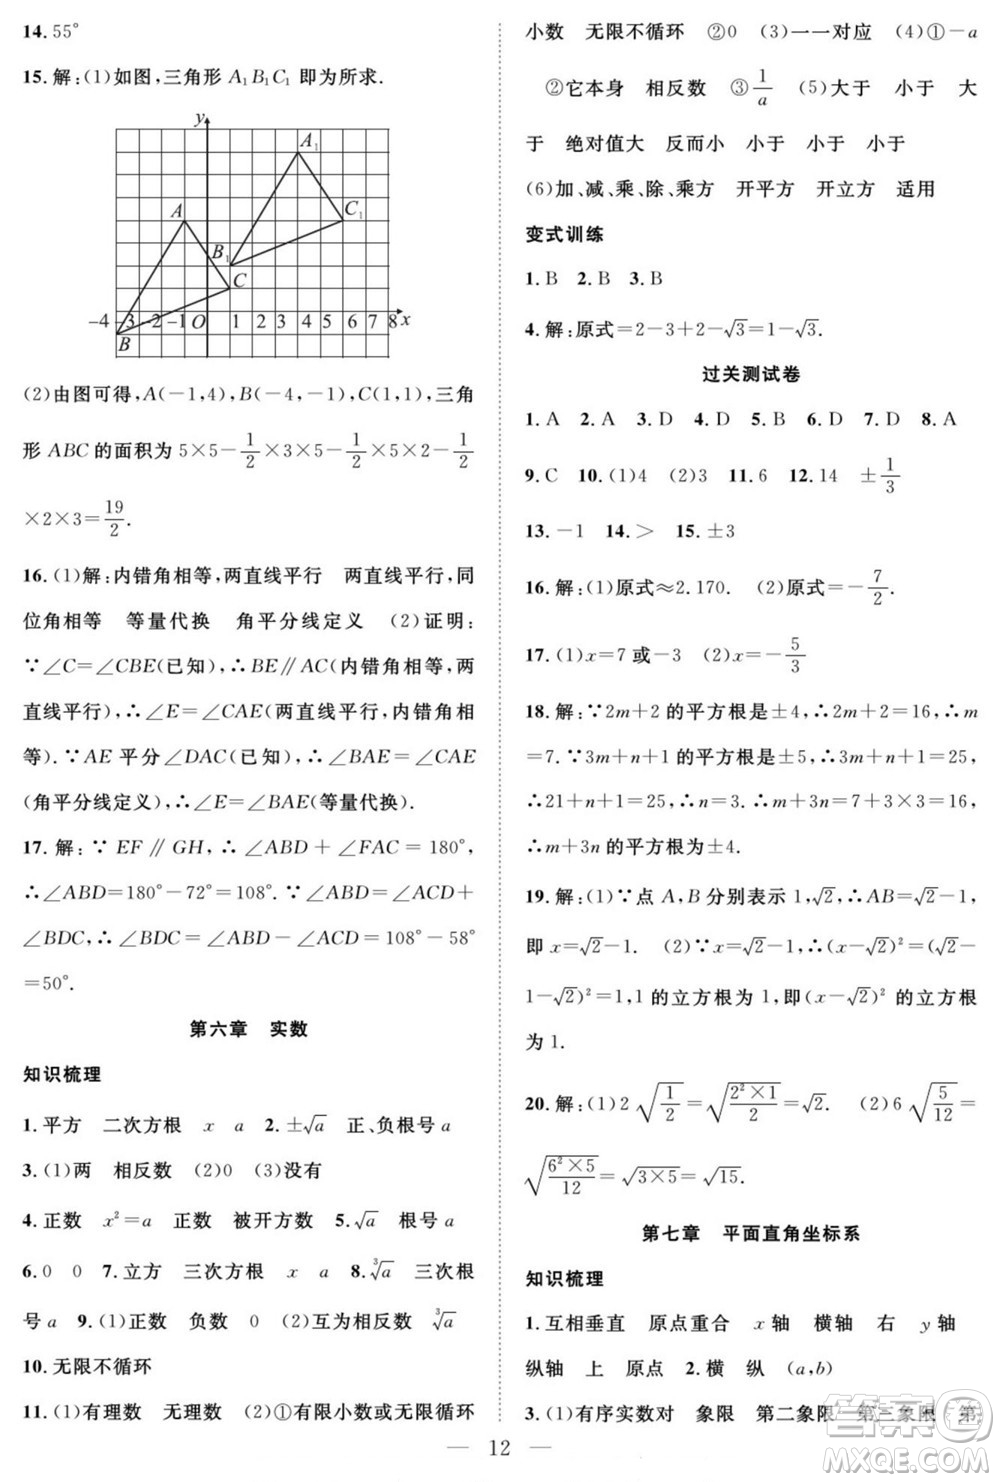 14.55°
15.解:(1)如图,三角形 A₁B₁C₁ 即为所求.
y
A₁
A
C₁
B₁
C
-4 -3 -2 -1 O 1 2 3 4 5 6 7 8 x
B
(2)由图可得,A(-1,4),B(-4,-1),C(1,1),三角
形 ABC 的面积为 5×5-1/2×3×5-1/2×5×2-1/2
×2×3=19/2.
16.(1)解:内错角相等,两直线平行 两直线平行,同
位角相等 等量代换 角平分线定义 (2)证明:
∵∠C=∠CBE(已知),∴BE∥AC(内错角相等,两
直线平行),∴∠E=∠CAE(两直线平行,内错角相
等).∵AE 平分∠DAC(已知),∴∠BAE=∠CAE
(角平分线定义),∴∠E=∠BAE(等量代换).
17.解:∵EF∥GH,∴∠ABD+∠FAC=180°,
∴∠ABD=180°-72°=108°.∵∠ABD=∠ACD+
∠BDC,∴∠BDC=∠ABD-∠ACD=108°-58°
=50°.
第六章 实数
知识梳理
1.平方 二次方根 x a 2.±√a 正、负根号a
3.(1)两 相反数 (2)0 (3)没有
4.正数 x²=a 正数 被开方数 5.√a 根号a
6.0 0 7.立方 三次方根 x a 8.∛a 三次根
号a 9.(1)正数 负数 0 (2)互为相反数 ∛a
10.无限不循环
11.(1)有理数 无理数 (2)①有限小数或无限循环
小数 无限不循环 ②0 (3)一一对应 (4)①-a
②它本身 相反数 ③1/a (5)大于 小于 大
于 绝对值大 反而小 小于 小于 小于
(6)加、减、乘、除、乘方 开平方 开立方 适用
变式训练
1.B 2.B 3.B
4.解:原式=2-3+2-√3=1-√3.
过关测试卷
1.A 2.A 3.D 4.D 5.B 6.D 7.D 8.A
9.C 10.(1)4 (2)3 11.0 12.14 ±1/3
13.-1 14.> 15.±3
16.解:(1)原式≈2.170. (2)原式=-7/2.
17.(1)x=7 或-3 (2)x=-5/3
18.解:∵2m+2 的平方根是±4,∴2m+2=16,∴m
=7.∵3m+n+1 的平方根是±5,∴3m+n+1=25,
∴21+n+1=25,∴n=3,∴m+3n=7+3×3=16,
∴m+3n 的平方根为±4.
19.解:(1)∵点 A,B 分别表示 1,√2,∴AB=√2-1,
即 x=√2-1. (2)∵x=√2-1,∴(x-√2)²=(√2-
1-√2)²=1,1 的立方根为 1,即(x-√2)² 的立方根
为 1.
20.解:(1)2√(1/2)=√((2²×1)/2)=√2. (2)6√(5/12)=
√((6²×5)/12)=√(3×5)=√15.
第七章 平面直角坐标系
知识梳理
1.互相垂直 原点重合 x 轴 横轴 右 y 轴
纵轴 上 原点 2.横 纵 (a,b)
3.(1)有序实数对 象限 第二象限 第三象限 第
12
答案圈
MXQE.COM